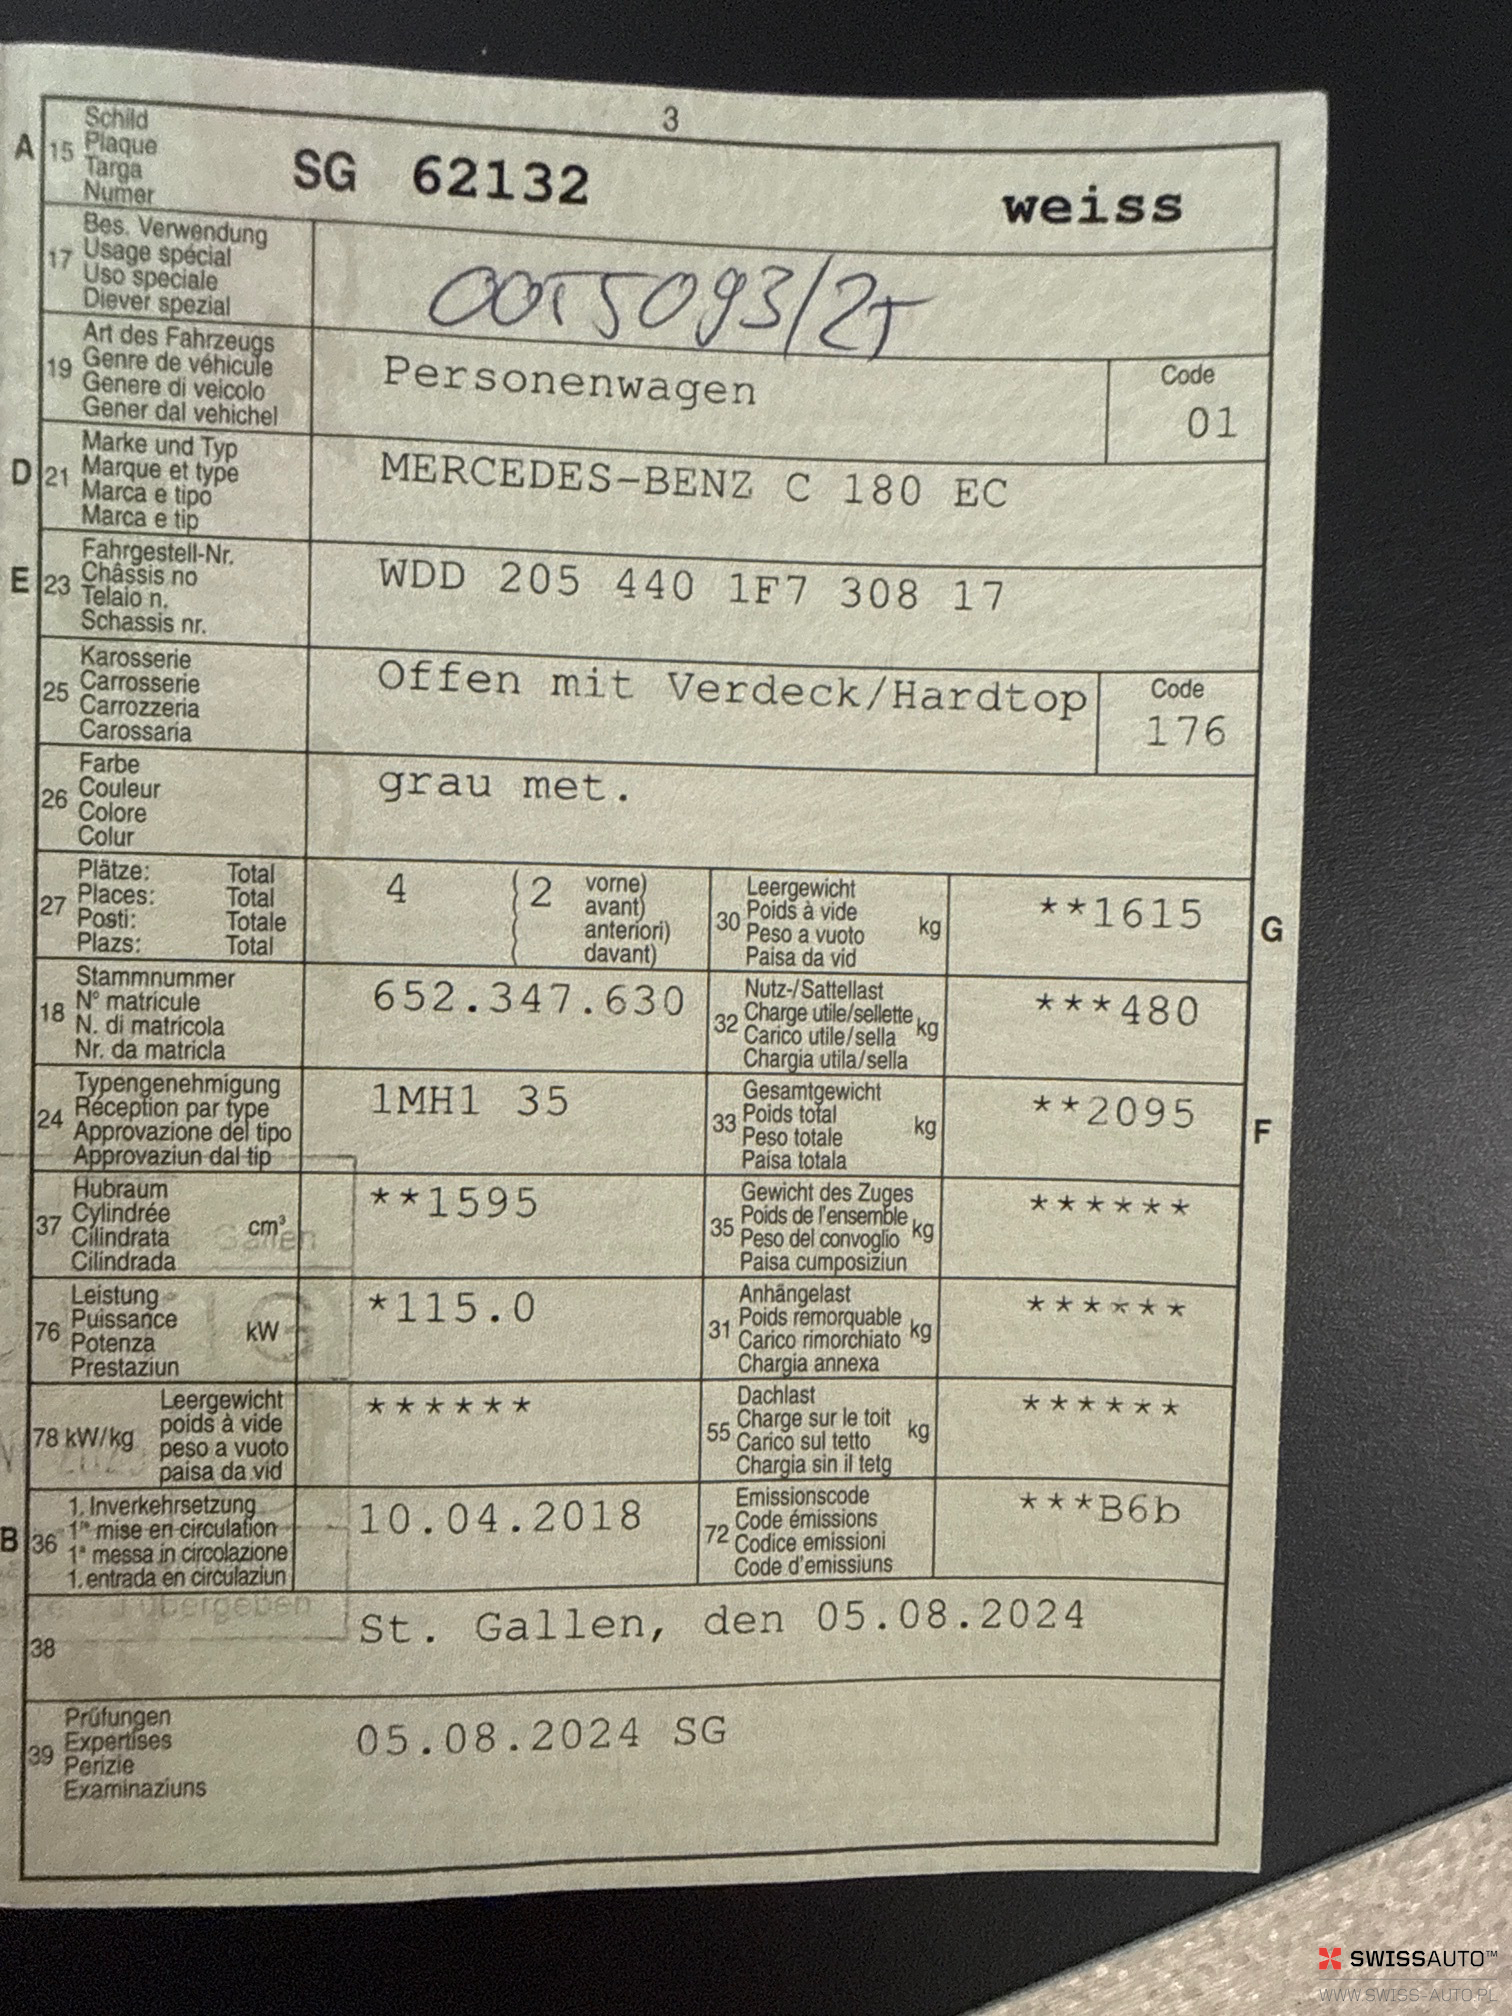 3
A 15 Schild
Plaque
Targa
Numer
SG 62132 weiss
17 Bes. Verwendung
Usage spécial
Uso speciale
Diever spezial
19 Art des Fahrzeugs
Genre de véhicule
Genere di veicolo
Gener dal vehichel
Personenwagen
Code
01
D 21 Marke und Typ
Marque et type
Marca e tipo
Marca e tip
MERCEDES-BENZ C 180 EC
E 23 Fahrgestell-Nr.
Châssis no
Telaio n.
Schassis nr.
WDD 205 440 1F7 308 17
25 Karosserie
Carrosserie
Carrozzeria
Carossaria
Offen mit Verdeck/Hardtop
Code
176
26 Farbe
Couleur
Colore
Colur
grau met.
27 Plätze: Total
Places: Total
Posti: Totale
Plazs: Total
4 (2 vorne)
( avant)
( anteriori)
( davant)
30 Leergewicht
Poids à vide
Peso a vuoto
Paisa da vid
kg
**1615
G
18 Stammnummer
N° matricule
N. di matricola
Nr. da matricla
652.347.630
32 Nutz-/Sattellast
Charge utile/sellette
Carico utile/sella
Chargia utila/sella
kg
***480
24 Typengenehmigung
Réception par type
Approvazione del tipo
Approvaziun dal tip
1MH1 35
33 Gesamtgewicht
Poids total
Peso totale
Paisa totala
kg
**2095
F
37 Hubraum
Cylindrée
Cilindrata
Cilindrada
cm³
**1595
35 Gewicht des Zuges
Poids de l'ensemble
Peso del convoglio
Paisa cumposiziun
kg
******
76 Leistung
Puissance
Potenza
Prestaziun
kW
*115.0
31 Anhängelast
Poids remorquable
Carico rimorchiato
Chargia annexa
kg
******
78 kW/kg Leergewicht
poids à vide
peso a vuoto
paisa da vid
******
55 Dachlast
Charge sur le toit
Carico sul tetto
Chargia sin il tetg
kg
******
B 36 1. Inverkehrsetzung
1re mise en circulation
1a messa in circolazione
1. entrada en circulaziun
10.04.2018
72 Emissionscode
Code émissions
Codice emissioni
Code d'emissiuns
***B6b
38 St. Gallen, den 05.08.2024
39 Prüfungen
Expertises
Perizie
Examinaziuns
05.08.2024 SG
SWISSAUTO™
WWW.SWISS-AUTO.PL